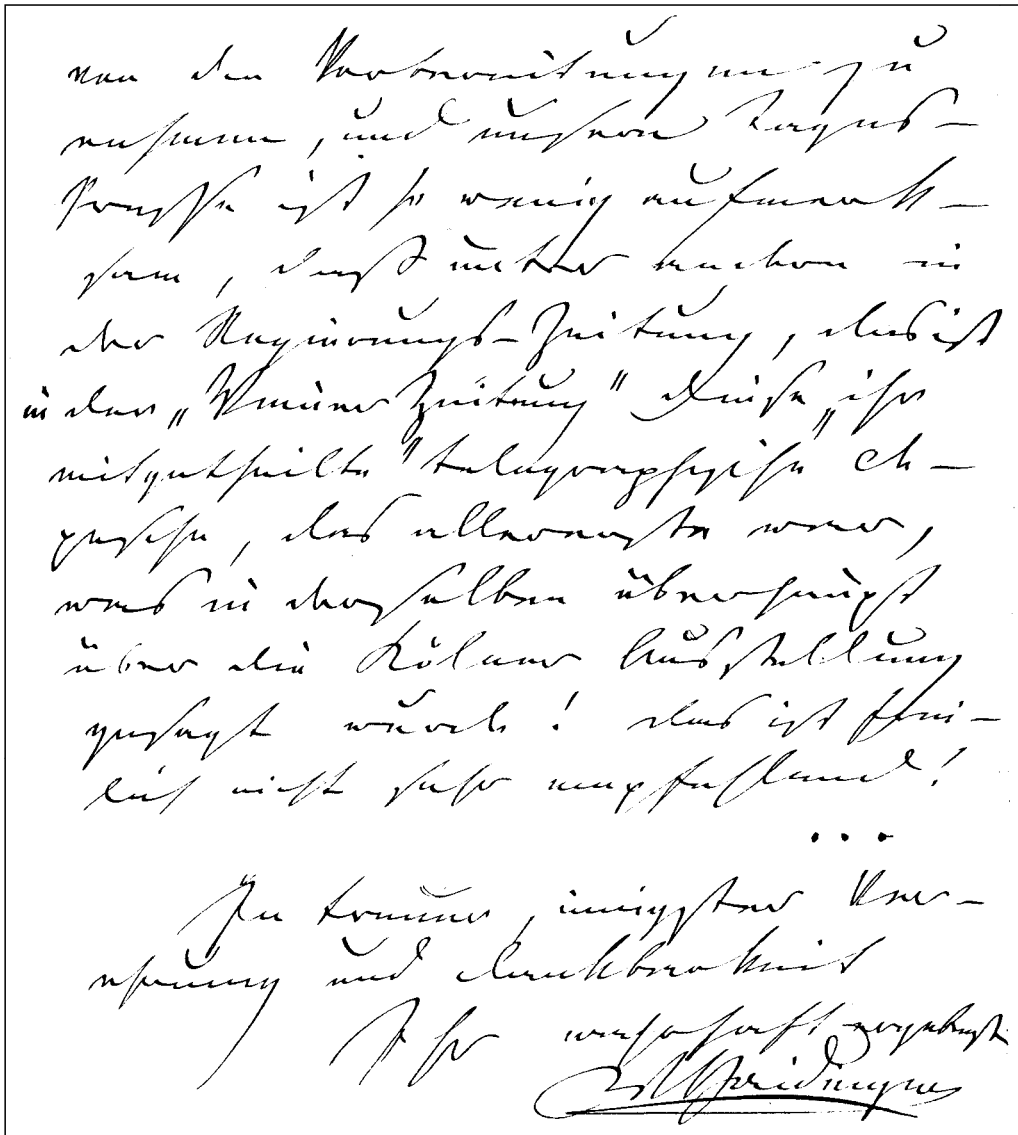 von den Vorbereitungen zu
nehmen, und unsere Tages-
Presse ist so wenig aufmerk-
sam, daß unter andern in
der Regierungs-Zeitung, das ist
in der „Wiener Zeitung" diese „ihr
mitgetheilte" telegraphische De-
pesche, das allererste war,
was in derselben überhaupt
über die Kölner Ausstellung
gesagt wurde! das ist frei-
lich nicht sehr empfehlend!
...
In treuer, innigster Ver-
ehrung und Dankbarkeit
Ihr wahrhaft ergebenst
WHaidinger